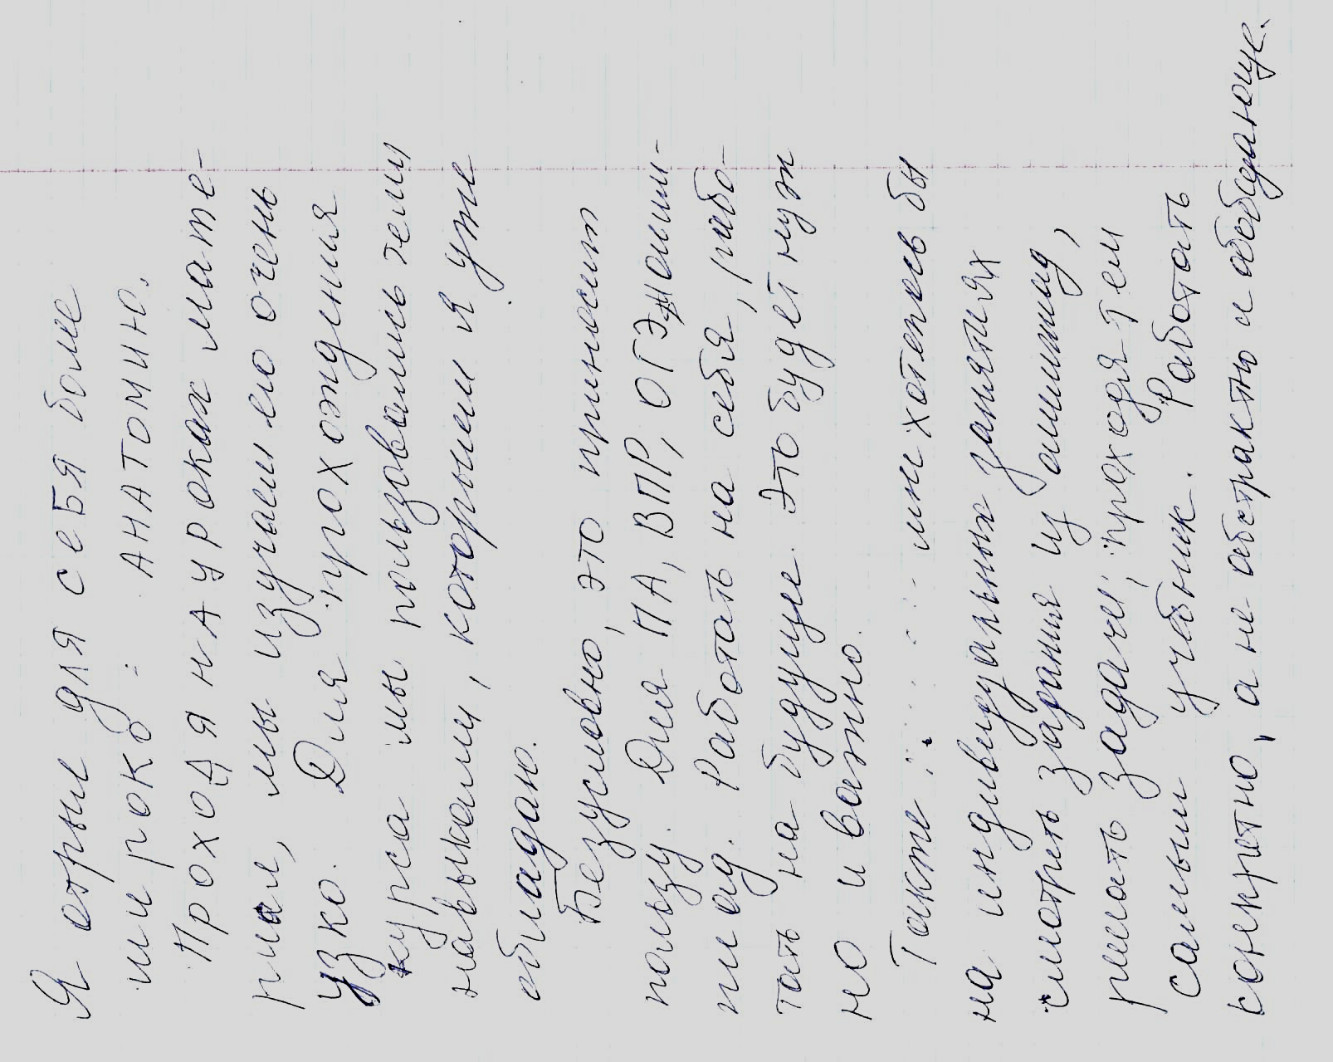 Я открыл для себя более
широко : АНАТОМИЮ.
Проходя на уроках мате-
риал, мы изучаем его очень
узко. Для прохождения
курса мы пользовались теми
навыками, которыми я уже
обладаю.
Безусловно, это приносит
пользу. Для ПА, ВПР, ОГЭ, олим-
пиад. Работать на себя, рабо-
тать на будущее. Это будет нуж
но и важно.
Также мне хотелось бы
на индивидуальных занятиях
смотреть задания из олимпиад,
решать задачи, проходя тем
самым учебник. Работать
конкретно, а не абстрактно и обобщающе.